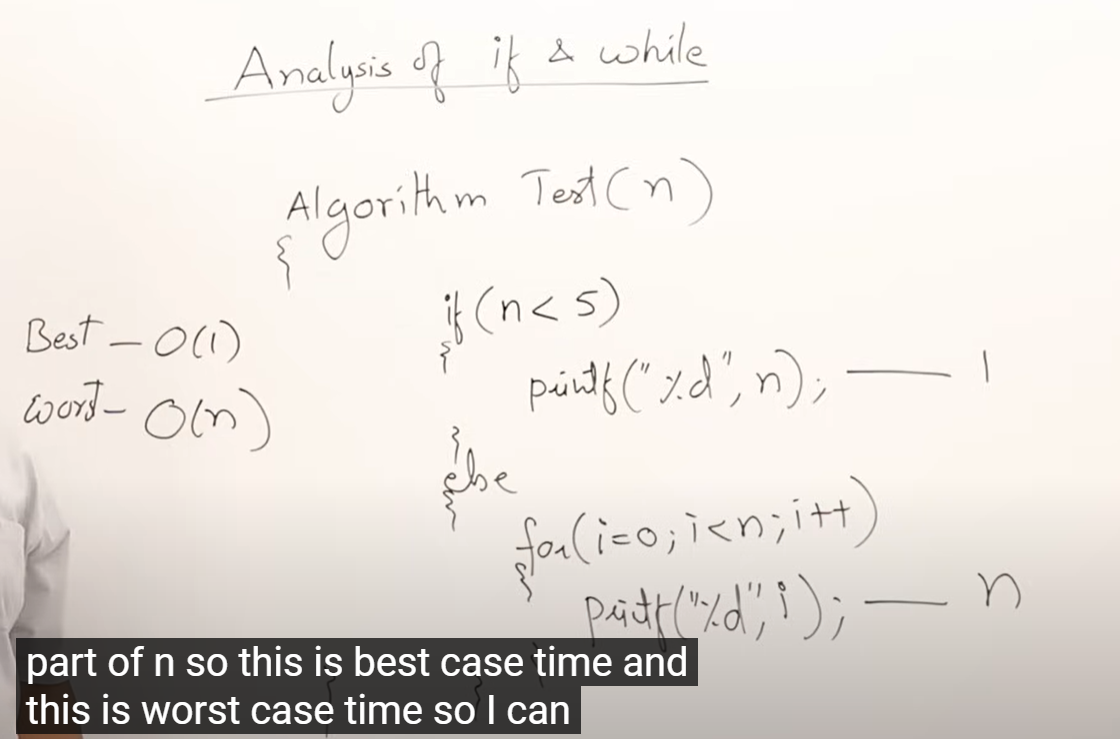 Analysis of if & while
Algorithm Test(n)
{
if(n< 5)
{
printf("%d", n); — 1
}
else
{
for(i=0; i<n; i++)
{
printf("%d", i); — n
}
}
}
Best – O(1)
worst – O(n)
part of n so this is best case time and
this is worst case time so I can